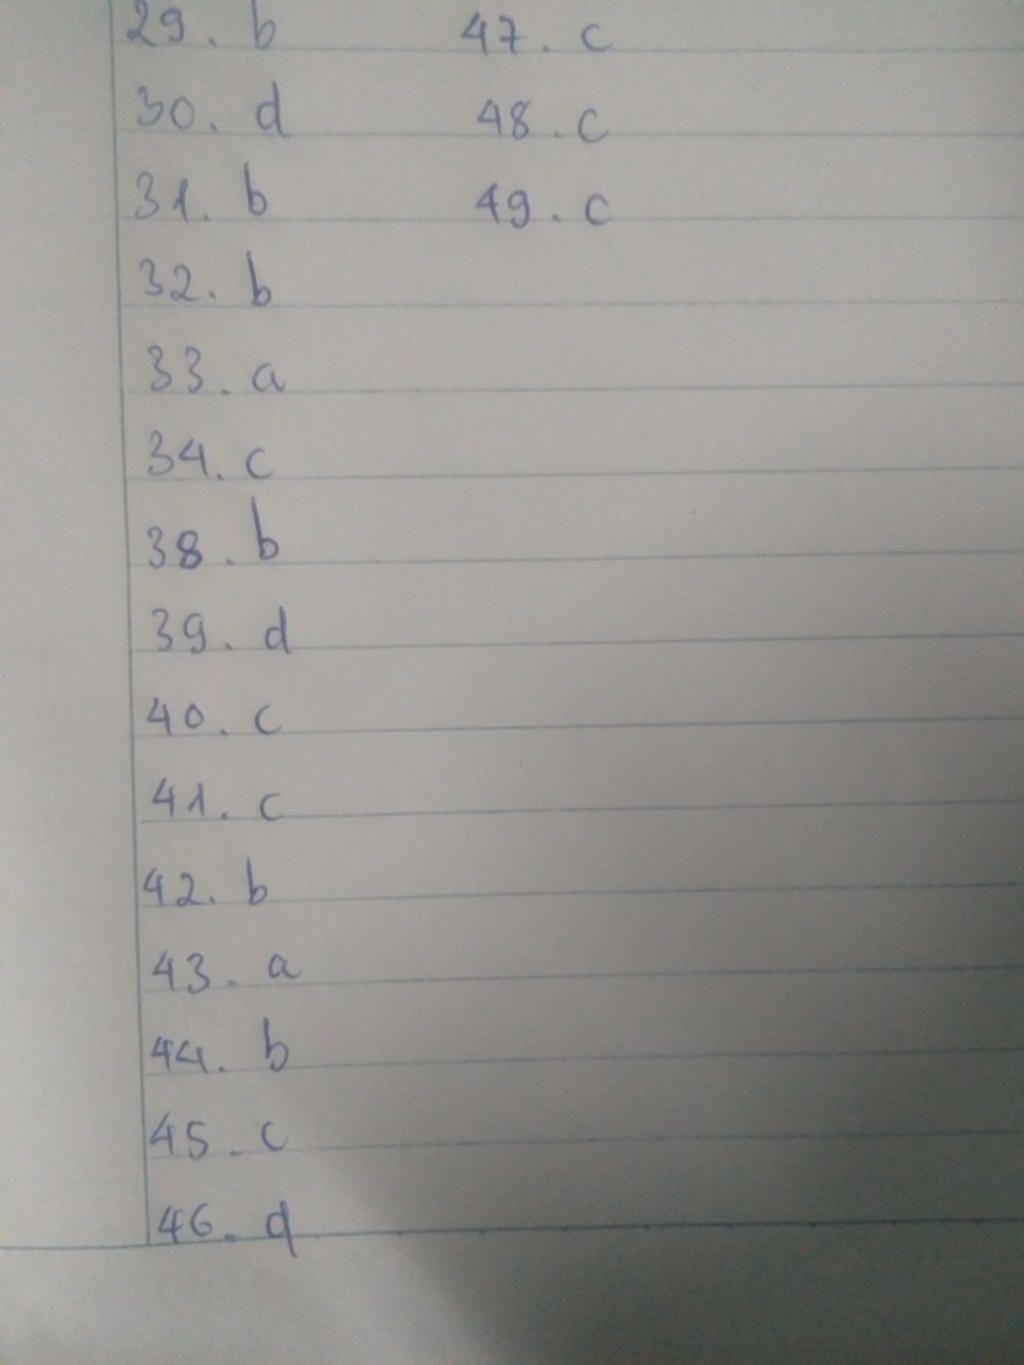 29. b
30. d
31. b
32. b
33. a
34. c
38. b
39. d
40. c
41. c
42. b
43. a
44. b
45. c
46. d
47. c
48. c
49. c